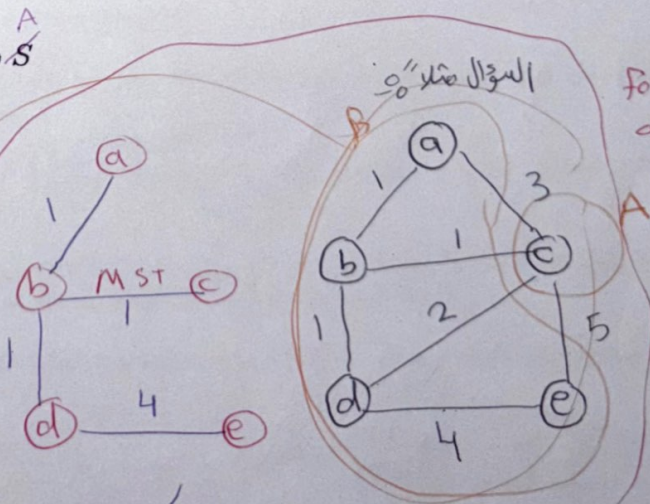 A
S
السؤال مثلاً
B
a
1
b
MST
c
1
1
d
4
e
a
1
3
A
b
1
c
1
2
5
d
4
e